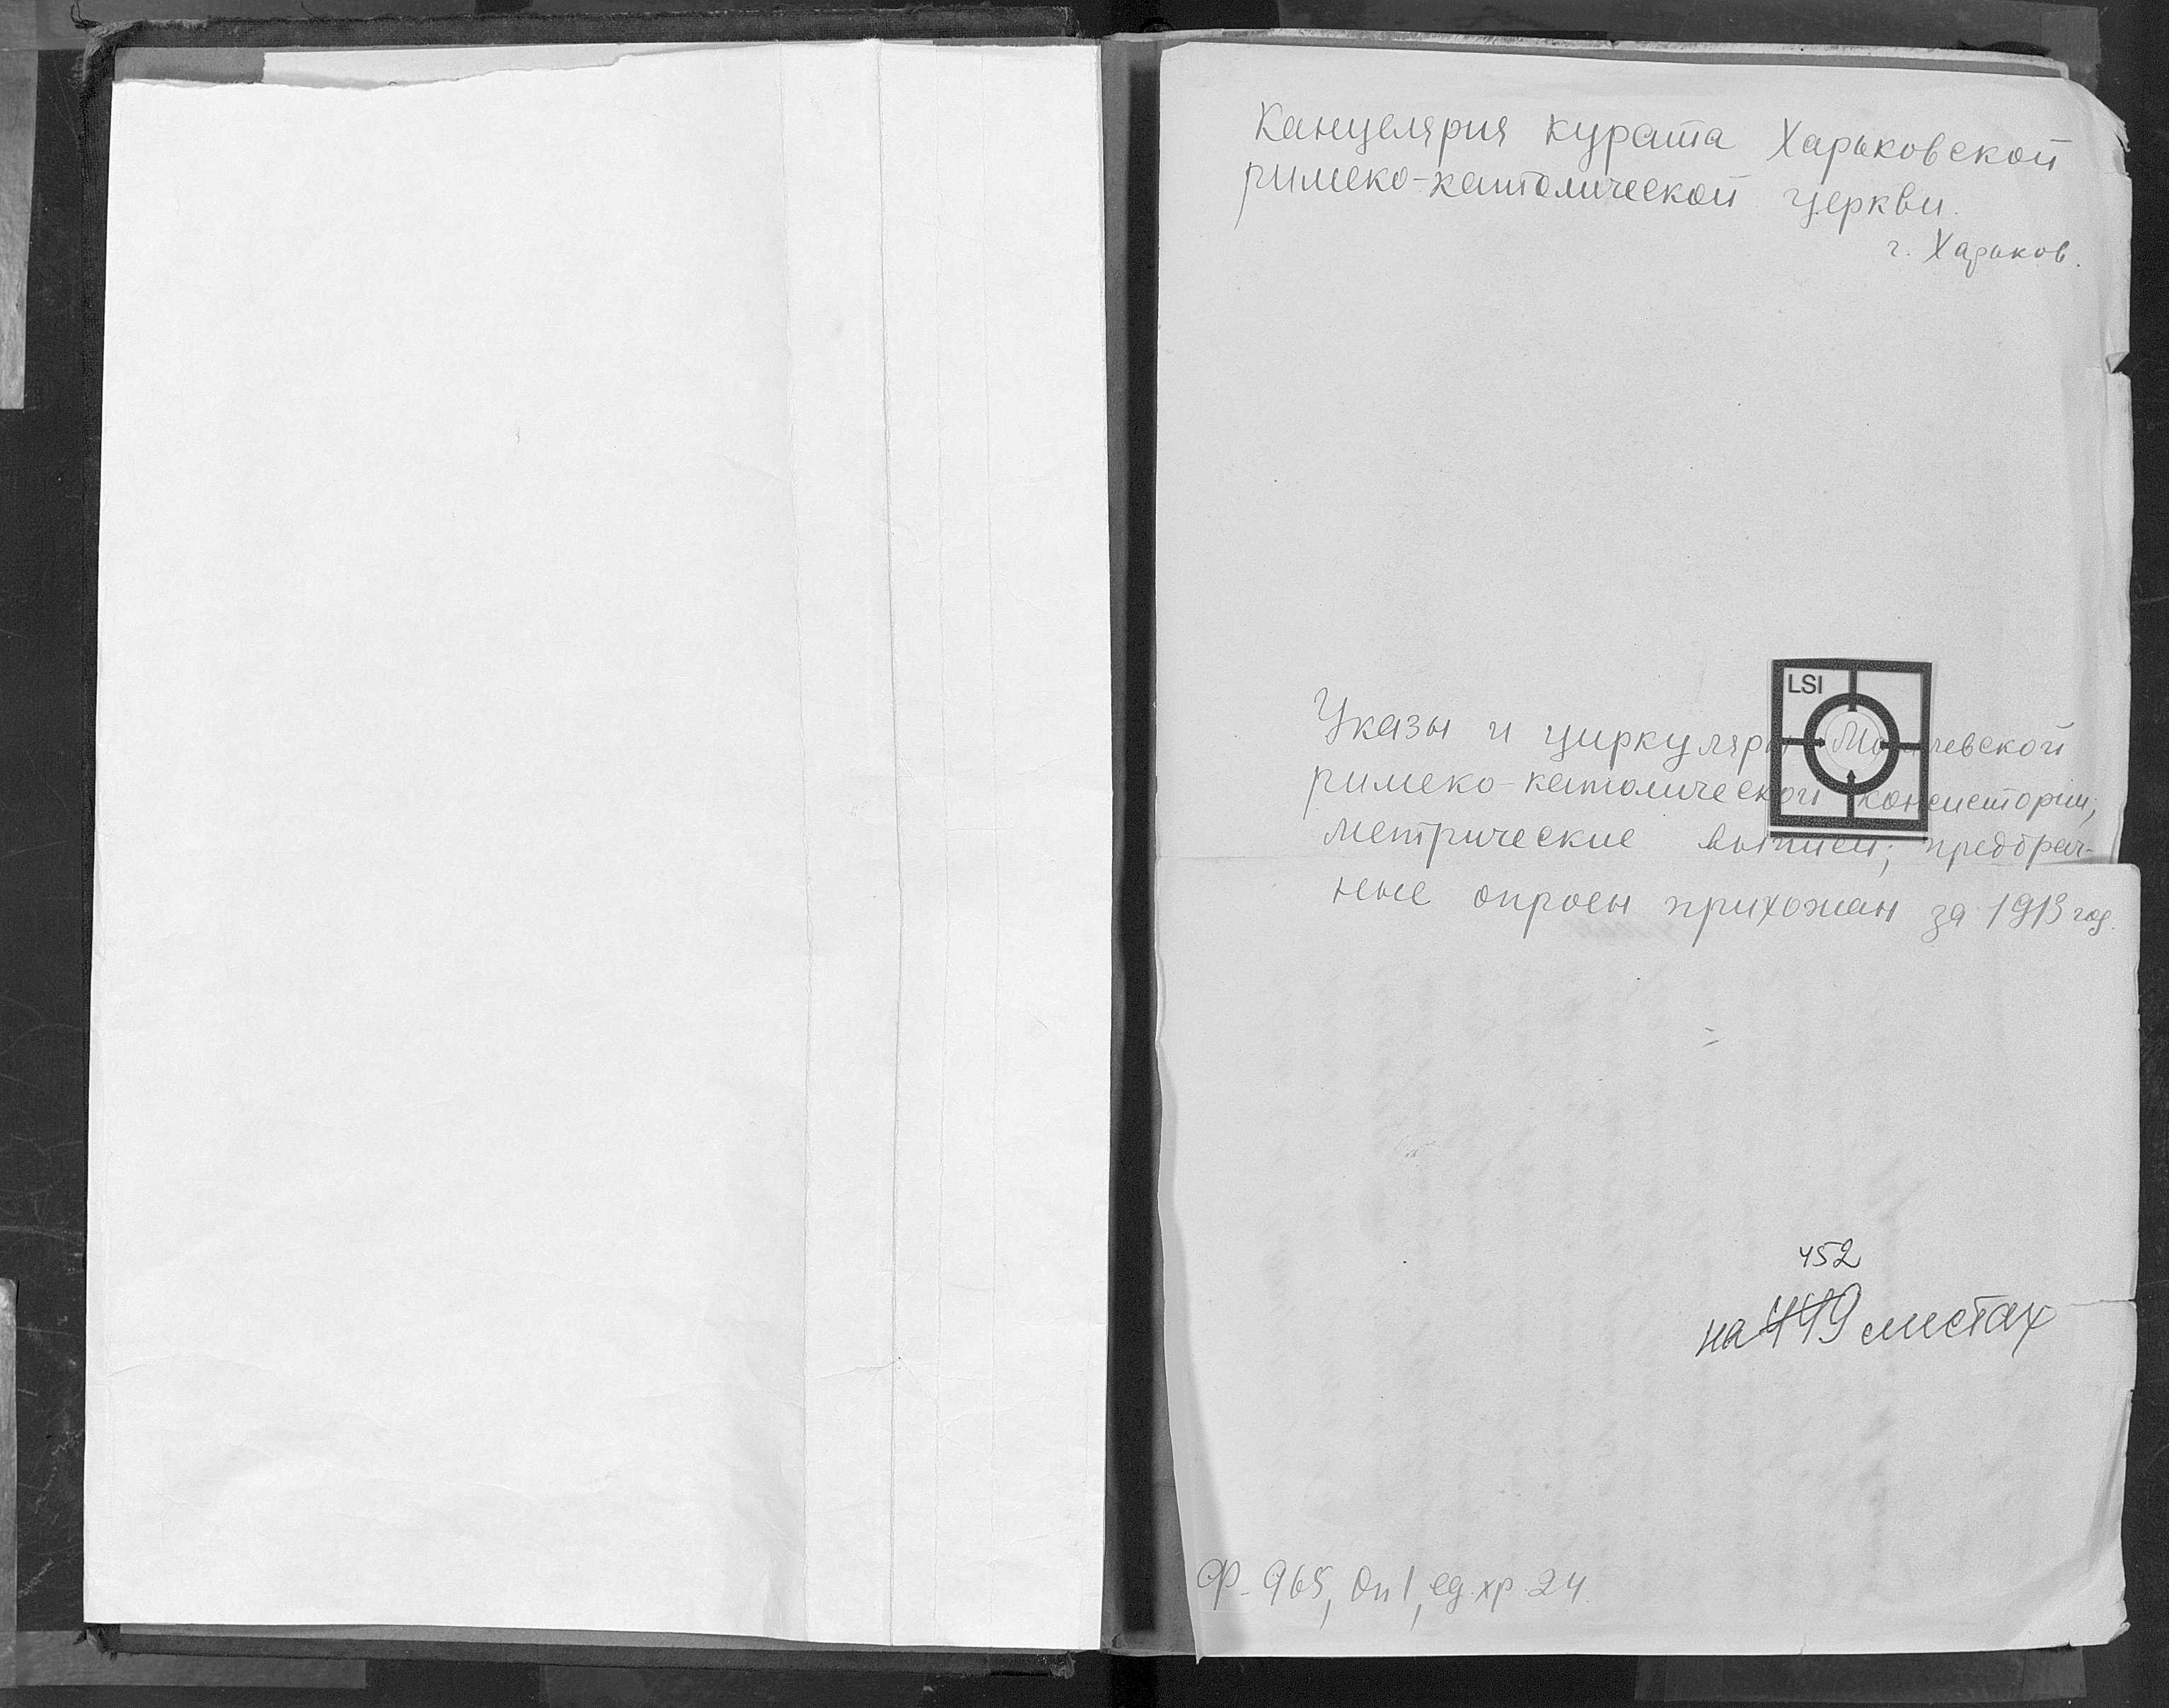 Канцелярия курата Харьковской
римско-католической церкви.
г. Харьков.
LSI
Указы и циркуляры Могилевской
римско-католической консистории;
метрические выписи; предбрач-
ные опросы прихожан за 1913 год.
452
на 449 листах
Ф- 965, Оп 1, ед. хр. 24.